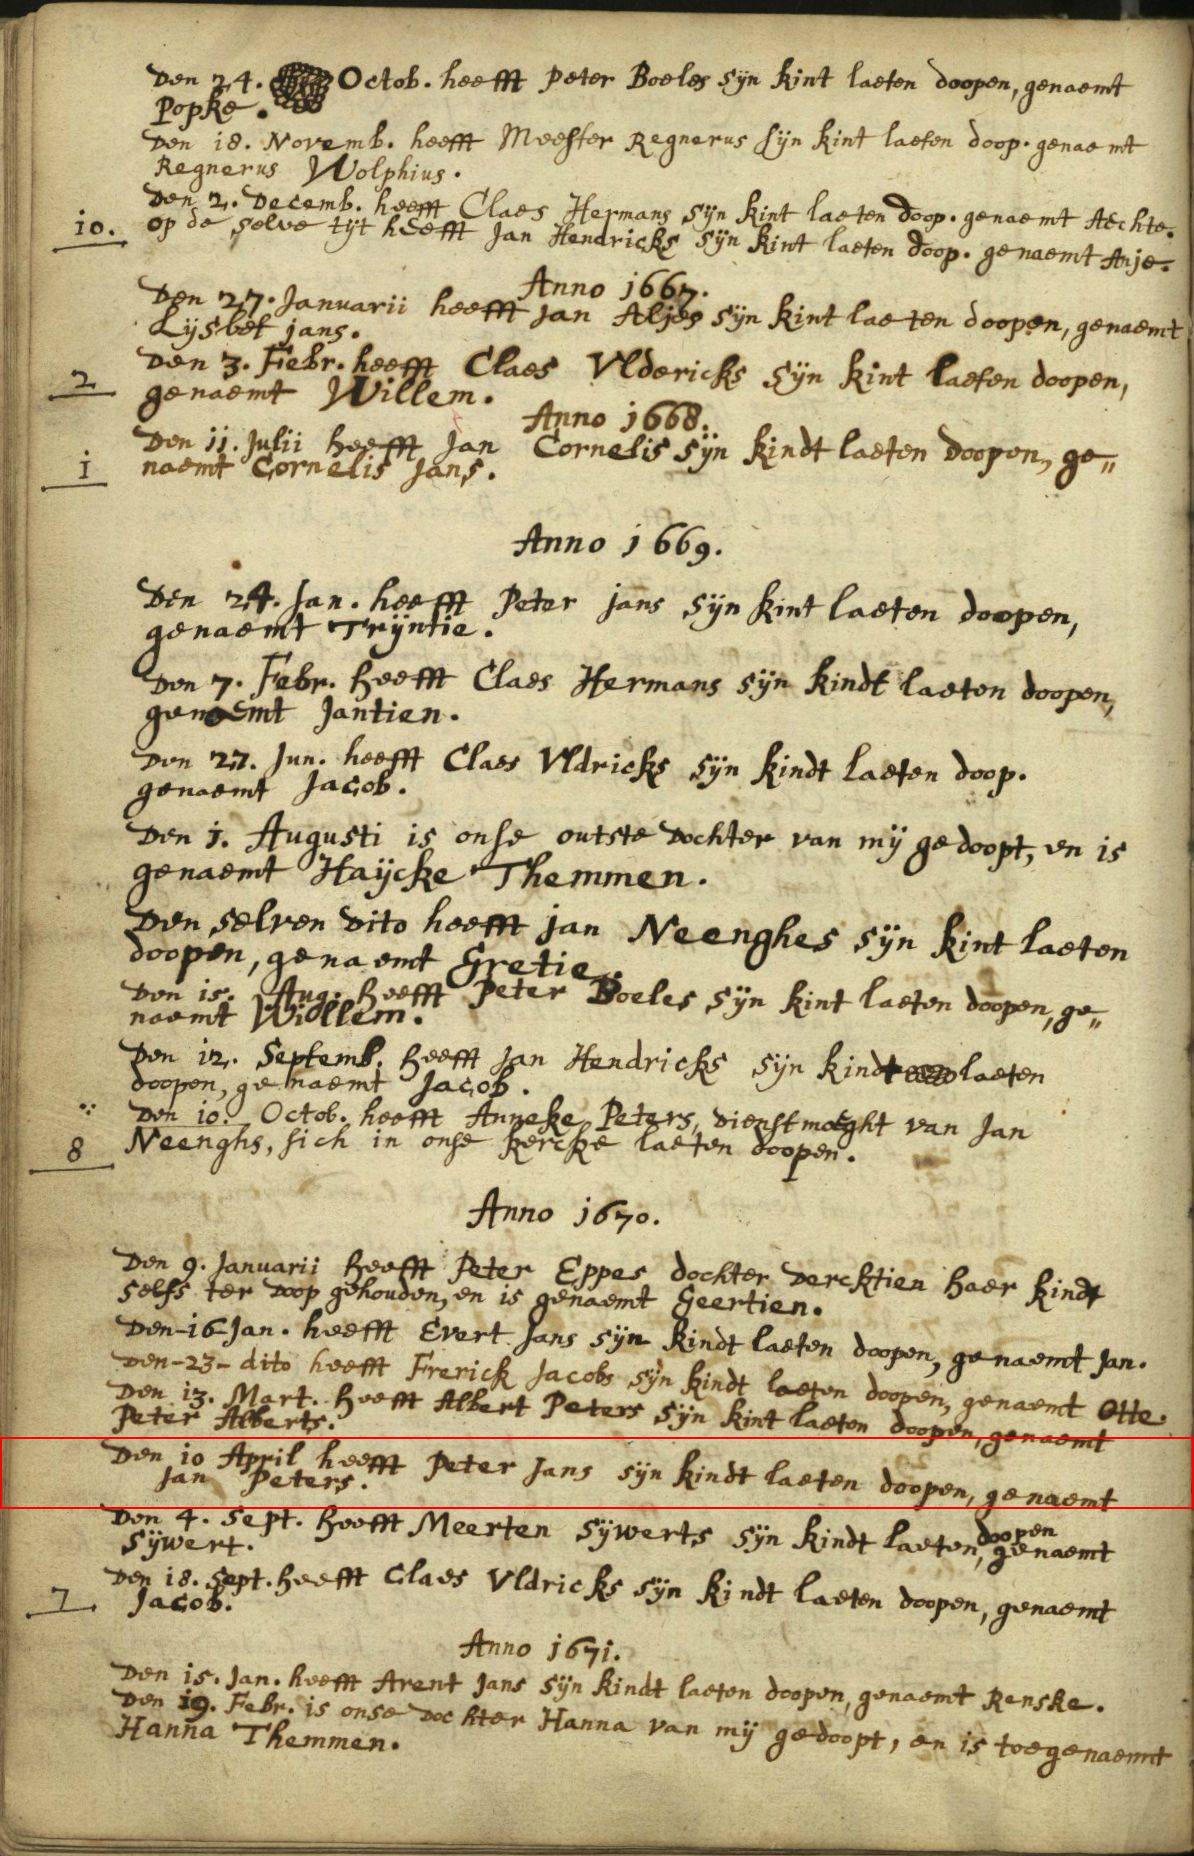 Den 24. Octob. heefft Peter Boeles sÿn kint laeten doopen, genaemt
Popke.
Den 18. Novemb. heefft Meester Regnerus sÿn kint laeten doop. genaemt
Regnerus Wolphius.
Den 2. Decemb. heefft Claes Hermans sÿn kint laeten doop. genaemt Aechte.
10. op de selve tijt heefft Jan Hendricks sÿn kint laeten doop. genaemt Anje.
Anno 1667.
Den 27. Januarii heefft Jan Aljes sÿn kint laeten doopen, genaemt
Lysbet jans.
Den 3. Febr. heefft Claes Vldericks sÿn kint laeten doopen,
2 genaemt Willem.
Anno 1668.
Den 11. Julii heefft Jan Cornelis sÿn kindt laeten doopen, ge„
1 naemt Cornelis Jans.
Anno 1669.
Den 24. Jan. heefft Peter jans sÿn kint laeten doopen,
genaemt Trÿntie.
Den 7. Febr. heefft Claes Hermans sÿn kindt laeten doopen,
genaemt Jantien.
Den 27. Jun. heefft Claes Vldricks sÿn kindt laeten doop.
genaemt Jacob.
Den 1. Augusti is onse outste Dochter van mÿ gedoopt, en is
genaemt Haÿcke Themmen.
Den selven dito heefft jan Neenghes sÿn kint laeten
doopen, genaemt Gretie.
Den 15. Aug. heefft Peter Boeles sÿn kint laeten doopen, ge„
naemt Willem.
Den 12. Septemb. heefft Jan Hendricks sÿn kindt laeten
doopen, genaemt Jacob.
Den 10. Octob. heefft Anneke Peters, dienstmaeght van Jan
8 Neenghs, sich in onse kercke laeten doopen.
Anno 1670.
Den 9. Januarii heefft Peter Eppes dochter Dercktien haer kindt
selfs ter doop gehouden, en is genaemt Geertien.
Den-16-Jan. heefft Evert Jans sÿn kindt laeten doopen, genaemt Jan.
Den-23-dito heefft Frerick Jacobs sÿn kindt laeten doopen, genaemt Otte.
Den 13. Mart. heefft Albert Peters sÿn kint laeten doopen, genaemt
Peter Alberts.
Den 10 April heefft Peter Jans sÿn kindt laeten doopen, genaemt
Jan Peters.
Den 4. Sept. heefft Meerten Sÿwerts sÿn kindt laeten doopen, genaemt
Sÿwert.
Den 18. Sept. heefft Claes Vldricks sÿn kindt laeten doopen, genaemt
7 Jacob.
Anno 1671.
Den 15. Jan. heefft Arent Jans sÿn kindt laeten doopen, genaemt Renske.
Den 19. Febr. is onse Dochter Hanna van mÿ gedoopt, en is toegenaemt
Hanna Themmen.